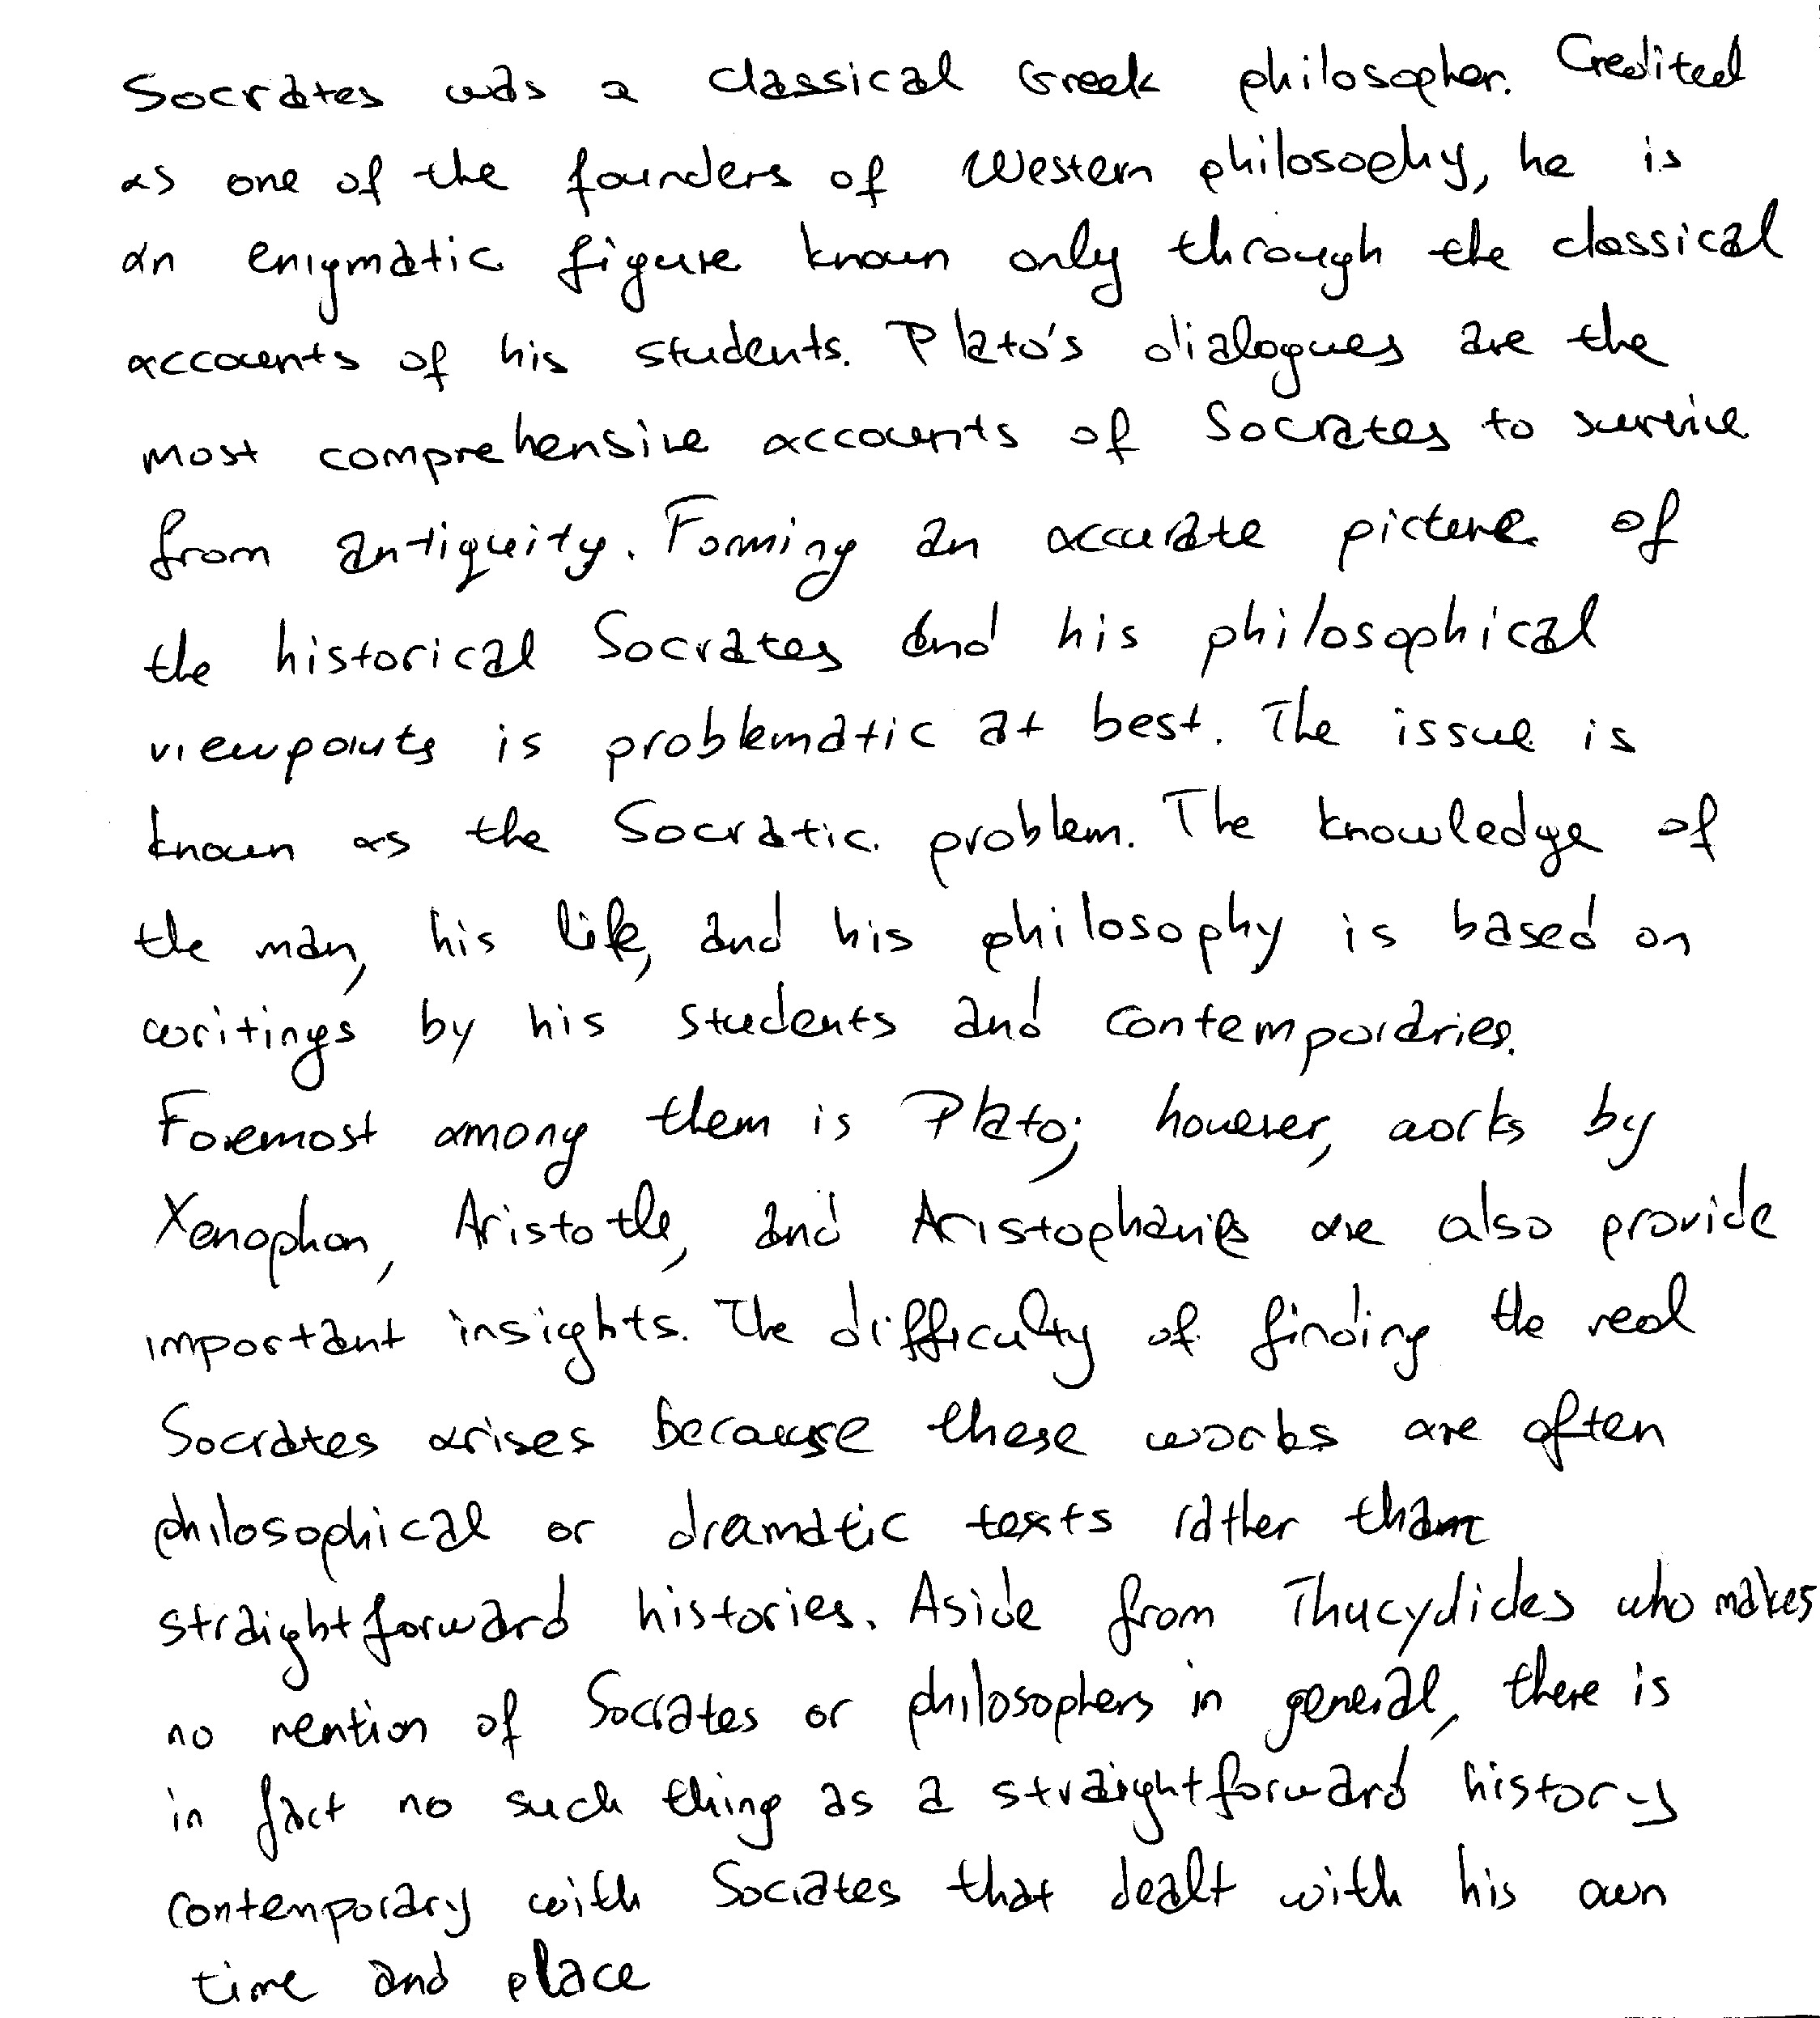 Socrates was a classical Greek philosopher. Credited
as one of the founders of Western philosophy, he is
an enigmatic figure known only through the classical
accounts of his students. Plato's dialogues are the
most comprehensive accounts of Socrates to survive
from antiquity. Forming an accurate picture of
the historical Socrates and his philosophical
viewpoints is problematic at best. The issue is
known as the Socratic problem. The knowledge of
the man, his life, and his philosophy is based on
writings by his students and contemporaries.
Foremost among them is Plato; however, works by
Xenophon, Aristotle, and Aristophanes are also provide
important insights. The difficulty of finding the real
Socrates arises because these works are often
philosophical or dramatic texts rather than
straightforward histories. Aside from Thucydides who makes
no mention of Socrates or philosophers in general, there is
in fact no such thing as a straightforward history
contemporary with Socrates that dealt with his own
time and place